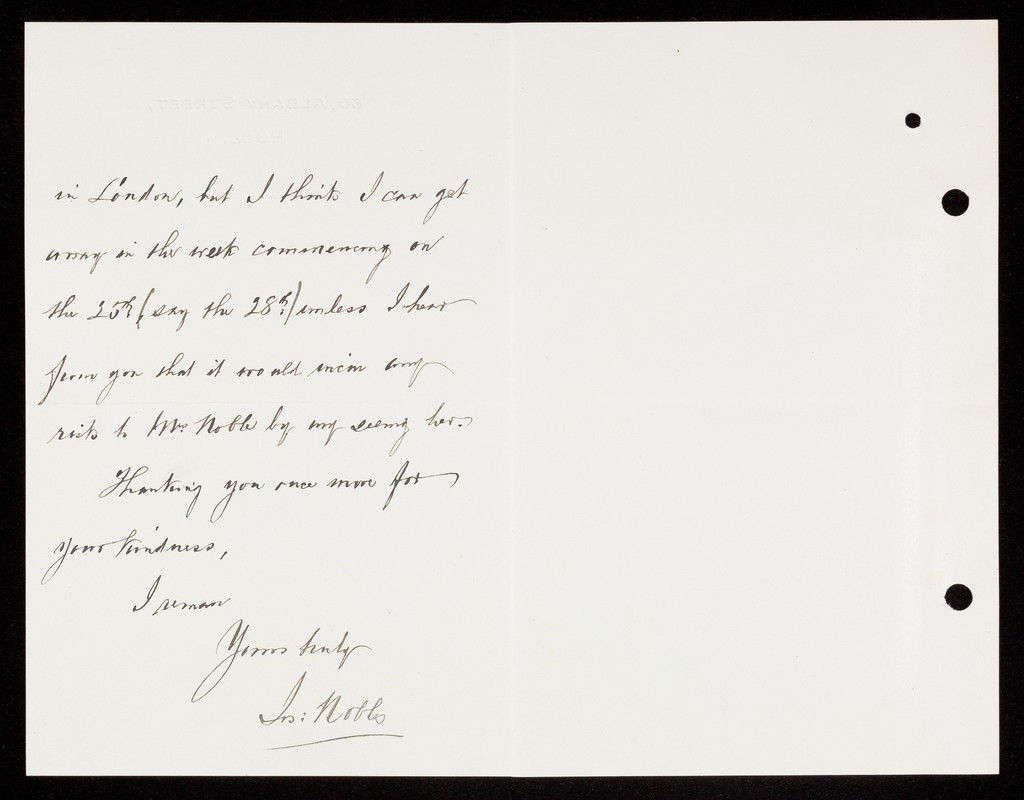 in London, but I think I can get
away in the week commencing on
the 25th (say the 28th) unless I hear
from you that it would incur any
risk to Mrs Noble by my seeing her.
Thanking you once more for
your kindness,
I remain
Yours truly
Jos: Noble